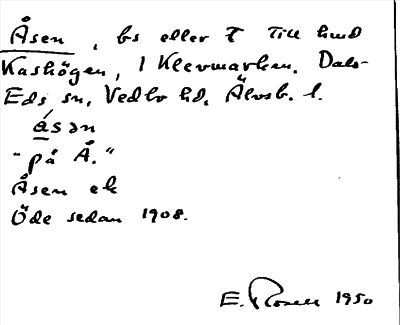 Åsen, bs eller T till hmd
Kashögen, 1 Klevmarken. Dals-
Eds sn, Vedbo hd, Älvsb. l.
åsən
"på Å."
Åsen ek
Öde sedan 1908.
E. Rosell 1950